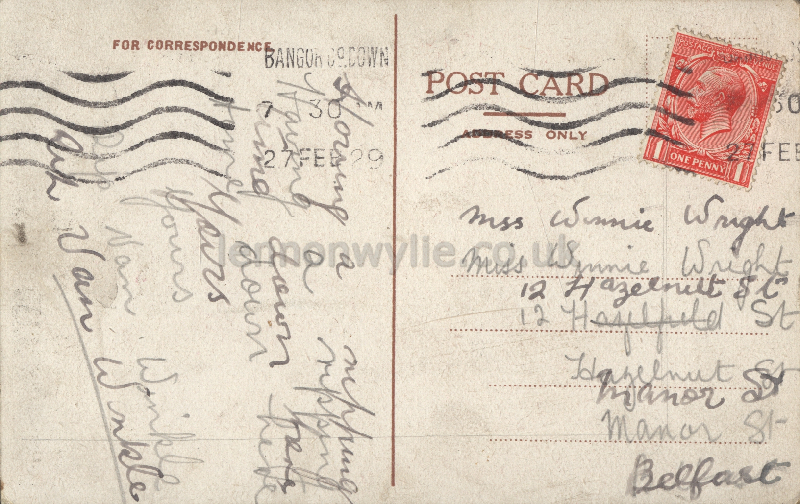 FOR CORRESPONDENCE
BANGOR CO. DOWN
7 30 AM
27 FEB 29
Having a ripping
Having a ripping
time down here
time down here
Yours
Yours
Rip Van Winkle
Rip Van Winkle
POST CARD
ADDRESS ONLY
ONE PENNY
30
27 FEB
Miss Winnie Wright
Miss Winnie Wright
12 Hazelnut St
12 Hazelfield St
Hazelnut St
Manor St
Manor St
Belfast
lennonwylie.co.uk